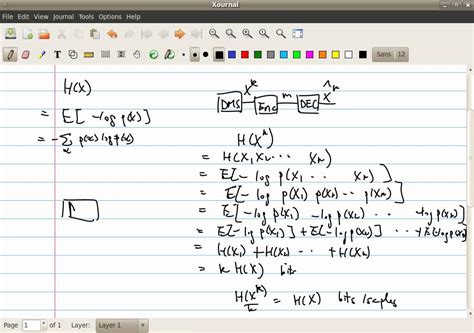 Xournal
File Edit View Journal Tools Options Help
Sans 12
H(X)
= E[-log p(X)]
= -∑ p(x) log p(x)
x
X^k m X̂_k
DMS Enc DEC
H(X^k)
= H(X₁ X₂ ... Xₖ)
= E[-log p(X₁ ... Xₖ)]
= E[-log p(X₁) p(X₂) ... p(Xₖ)]
= E[-log p(X₁) -log p(X₂) ... -log p(Xₖ)]
= E[-log p(X₁)] + E[-log p(X₂)] ... + E[-log p(Xₖ)]
= H(X₁) + H(X₂) + ... + H(Xₖ)
= k H(X) bits
H(X^k)/k = H(X) bits/sample
Page 1 of 1 Layer: Layer 1